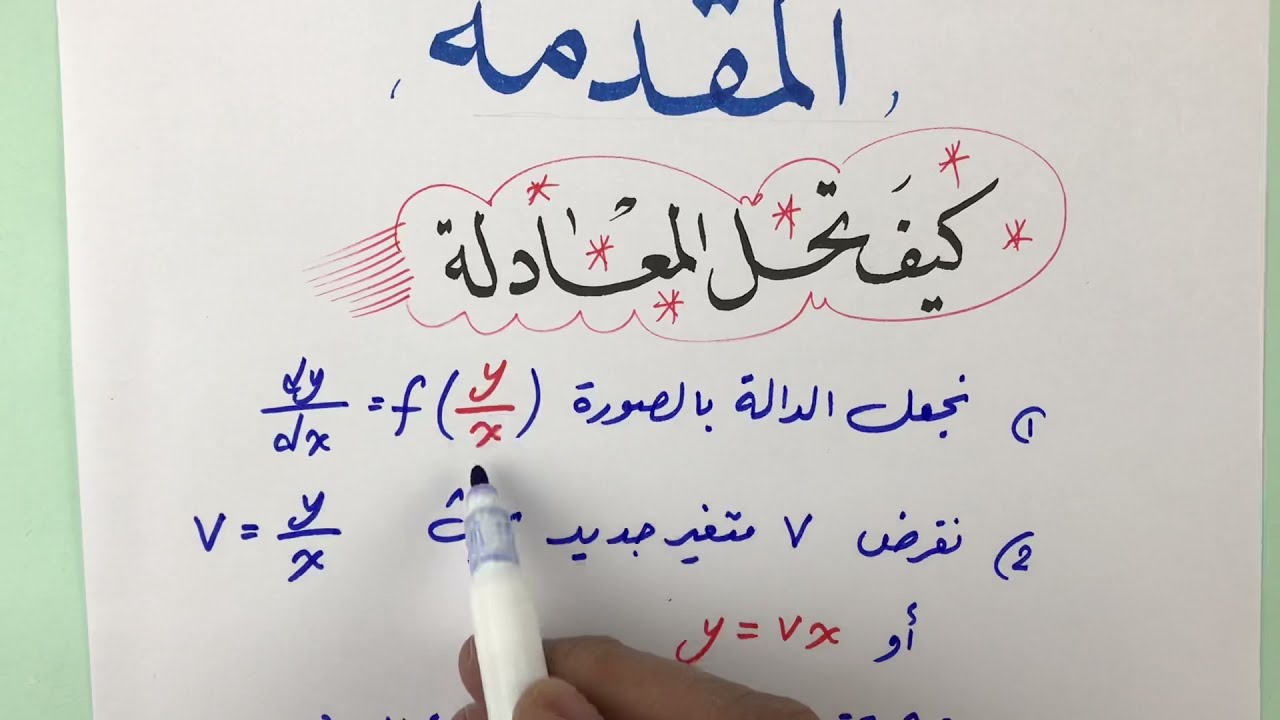 المقدمة
كيفَ تحل المعادلة
1) نجعل الدالة بالصورة dy/dx = f(y/x)
2) نفرض v متغير جديد v = y/x
أو y = vx